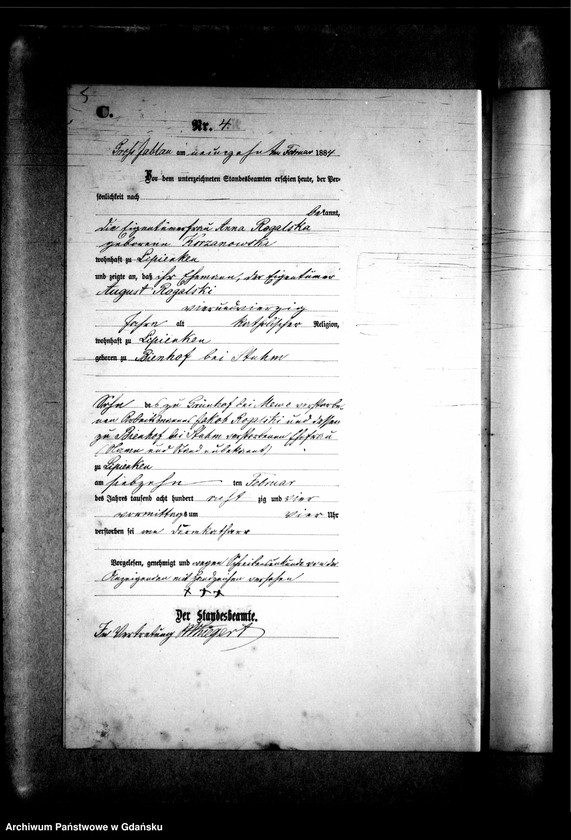 5
C.
Nr. 4
Groß Jablau am neunzehnten Februar 1884
Vor dem unterzeichneten Standesbeamten erschien heute, der Per-
sönlichkeit nach
bekannt,
die Eigentümerfrau Anna Rogalska
geborene Korzanowska
wohnhaft zu Lipienken
und zeigte an, daß ihr Ehemann, der Eigentümer
August Rogalski
vierundvierzig
Jahre alt katholischer Religion,
wohnhaft zu Lipienken
geboren zu Bienhof bei Stuhm
Sohn des zu Grünhof bei Mewe verstorbe-
nen Arbeitsmannes Jakob Rogalski und dessen
zu Bienhof bei Stuhm verstorbenen Ehefrau
(Name und Stand unbekannt)
zu Lipienken
am siebzehn ten Februar
des Jahres tausend acht hundert acht zig und vier
vormittags um vier Uhr
verstorben sei
Vorgelesen, genehmigt und wegen Schreibensunkunde von der
Anzeigenden mit Handzeichen versehen
+ + +
Der Standesbeamte.
In Vertretung
Archiwum Państwowe w Gdańsku